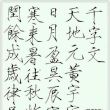 千字文
天地元黃宇
日月盈昃辰
寒來暑往秋
閏餘成歲律